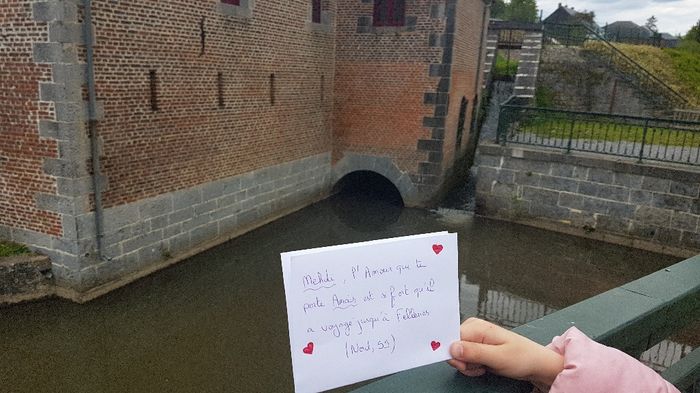 Mehdi, l'Amour que te
porte Anaïs est si fort qu'il
a voyagé jusqu'à Felleries
(Nord, 59)